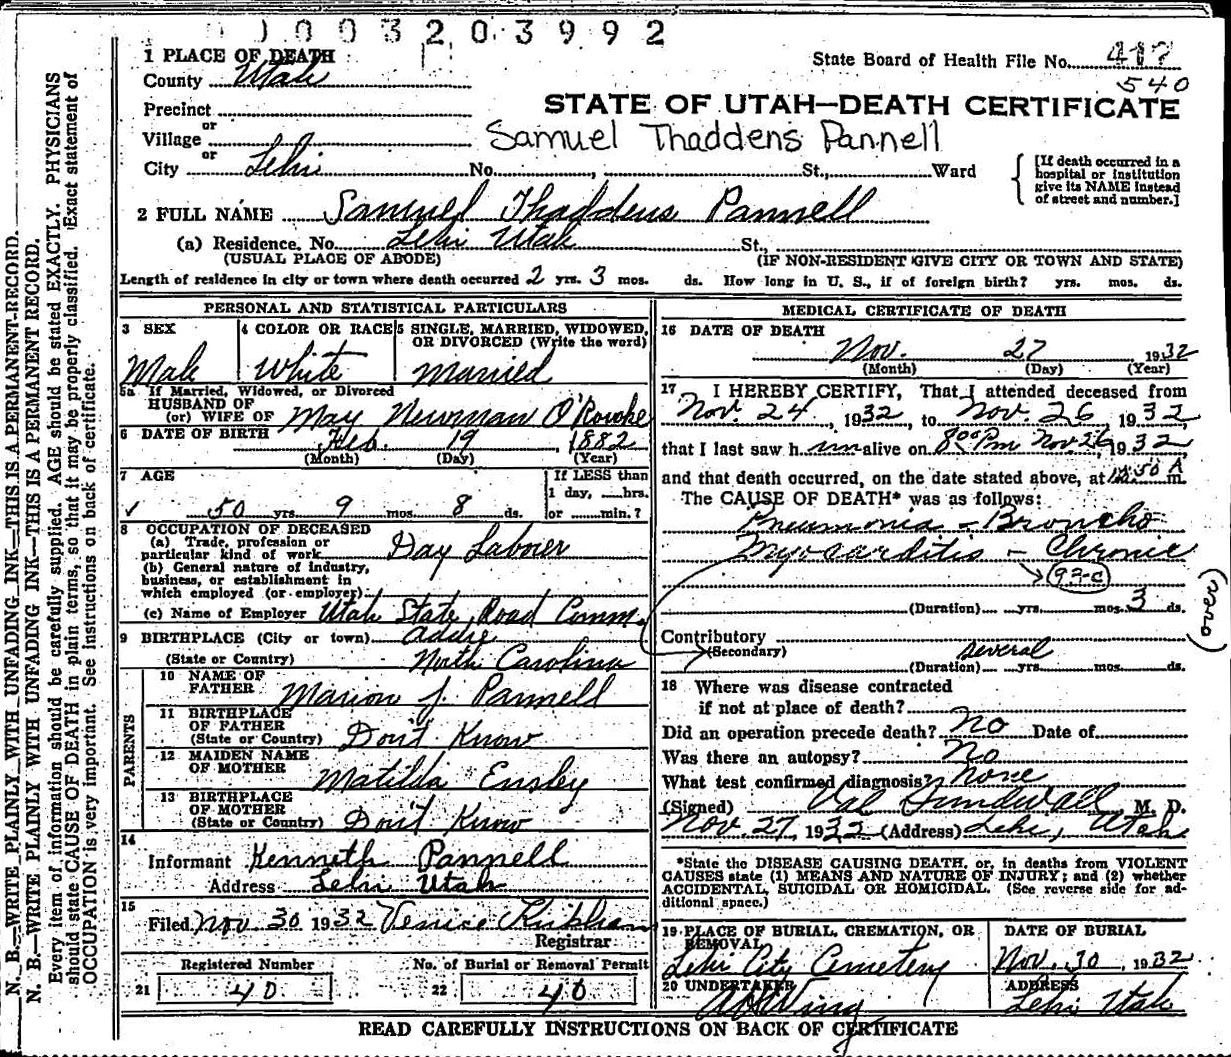 00003203992
1 PLACE OF DEATH
County Utah
State Board of Health File No. 417
540
Precinct
STATE OF UTAH—DEATH CERTIFICATE
or
Village
Samuel Thaddens Pannell
or
City Lehi No. , St., Ward
[If death occurred in a hospital or institution give its NAME instead of street and number.]
2 FULL NAME Samuel Thaddeus Pannell
(a) Residence, No. Lehi Utah St.,
(USUAL PLACE OF ABODE) (IF NON-RESIDENT GIVE CITY OR TOWN AND STATE)
Length of residence in city or town where death occurred 2 yrs. 3 mos. ds. How long in U. S., if of foreign birth? yrs. mos. ds.
PERSONAL AND STATISTICAL PARTICULARS
3 SEX
Male
4 COLOR OR RACE
White
5 SINGLE, MARRIED, WIDOWED,
OR DIVORCED (Write the word)
Married
5a If Married, Widowed, or Divorced
HUSBAND OF
(or) WIFE OF May Newman O'Rourke
6 DATE OF BIRTH Feb. 19 1882
(Month) (Day) (Year)
7 AGE
50 yrs 9 mos 8 ds.
If LESS than
1 day, hrs.
or min.?
8 OCCUPATION OF DECEASED
(a) Trade, profession or
particular kind of work Day Laborer
(b) General nature of industry,
business, or establishment in
which employed (or employer)
(c) Name of Employer Utah State Road Comm.
9 BIRTHPLACE (City or town) Addie
(State or Country) North Carolina
PARENTS
10 NAME OF
FATHER Marion J. Pannell
11 BIRTHPLACE
OF FATHER
(State or Country) Don't Know
12 MAIDEN NAME
OF MOTHER Matilda Ensley
13 BIRTHPLACE
OF MOTHER
(State or Country) Don't Know
14
Informant Kenneth Pannell
Address Lehi Utah
15
Filed Nov. 30 1932 Venice
Registrar
Registered Number
21 40
No. of Burial or Removal Permit
22 40
MEDICAL CERTIFICATE OF DEATH
16 DATE OF DEATH
Nov. 27 1932
(Month) (Day) (Year)
17 I HEREBY CERTIFY, That I attended deceased from
Nov. 24, 1932, to Nov. 26 1932,
that I last saw him alive on 8:00 Pm Nov. 26, 1932,
and that death occurred, on the date stated above, at 12:50 A m.
The CAUSE OF DEATH* was as follows:
Pneumonia - Broncho
Myocarditis - Chronic
93-c
(Duration) yrs. mos. 3 ds.
(over)
Contributory
(Secondary) several
(Duration) yrs. mos. ds.
18 Where was disease contracted
if not at place of death?
Did an operation precede death? No Date of
Was there an autopsy? No
What test confirmed diagnosis? None
(Signed) Val Sundwall, M. D.
Nov. 27, 1932 (Address) Lehi, Utah
*State the DISEASE CAUSING DEATH, or, in deaths from VIOLENT
CAUSES state (1) MEANS AND NATURE OF INJURY; and (2) whether
ACCIDENTAL, SUICIDAL OR HOMICIDAL. (See reverse side for ad-
ditional space.)
19 PLACE OF BURIAL, CREMATION, OR
REMOVAL
Lehi City Cemetery
DATE OF BURIAL
Nov. 30, 1932
20 UNDERTAKER
Wing
ADDRESS
Lehi Utah
READ CAREFULLY INSTRUCTIONS ON BACK OF CERTIFICATE
N. B.—WRITE PLAINLY WITH UNFADING INK—THIS IS A PERMANENT RECORD.
N. B.—WRITE PLAINLY WITH UNFADING INK—THIS IS A PERMANENT RECORD.
Every item of information should be carefully supplied. AGE should be stated EXACTLY. PHYSICIANS
should state CAUSE OF DEATH in plain terms, so that it may be properly classified. Exact statement of
OCCUPATION is very important. See instructions on back of certificate.